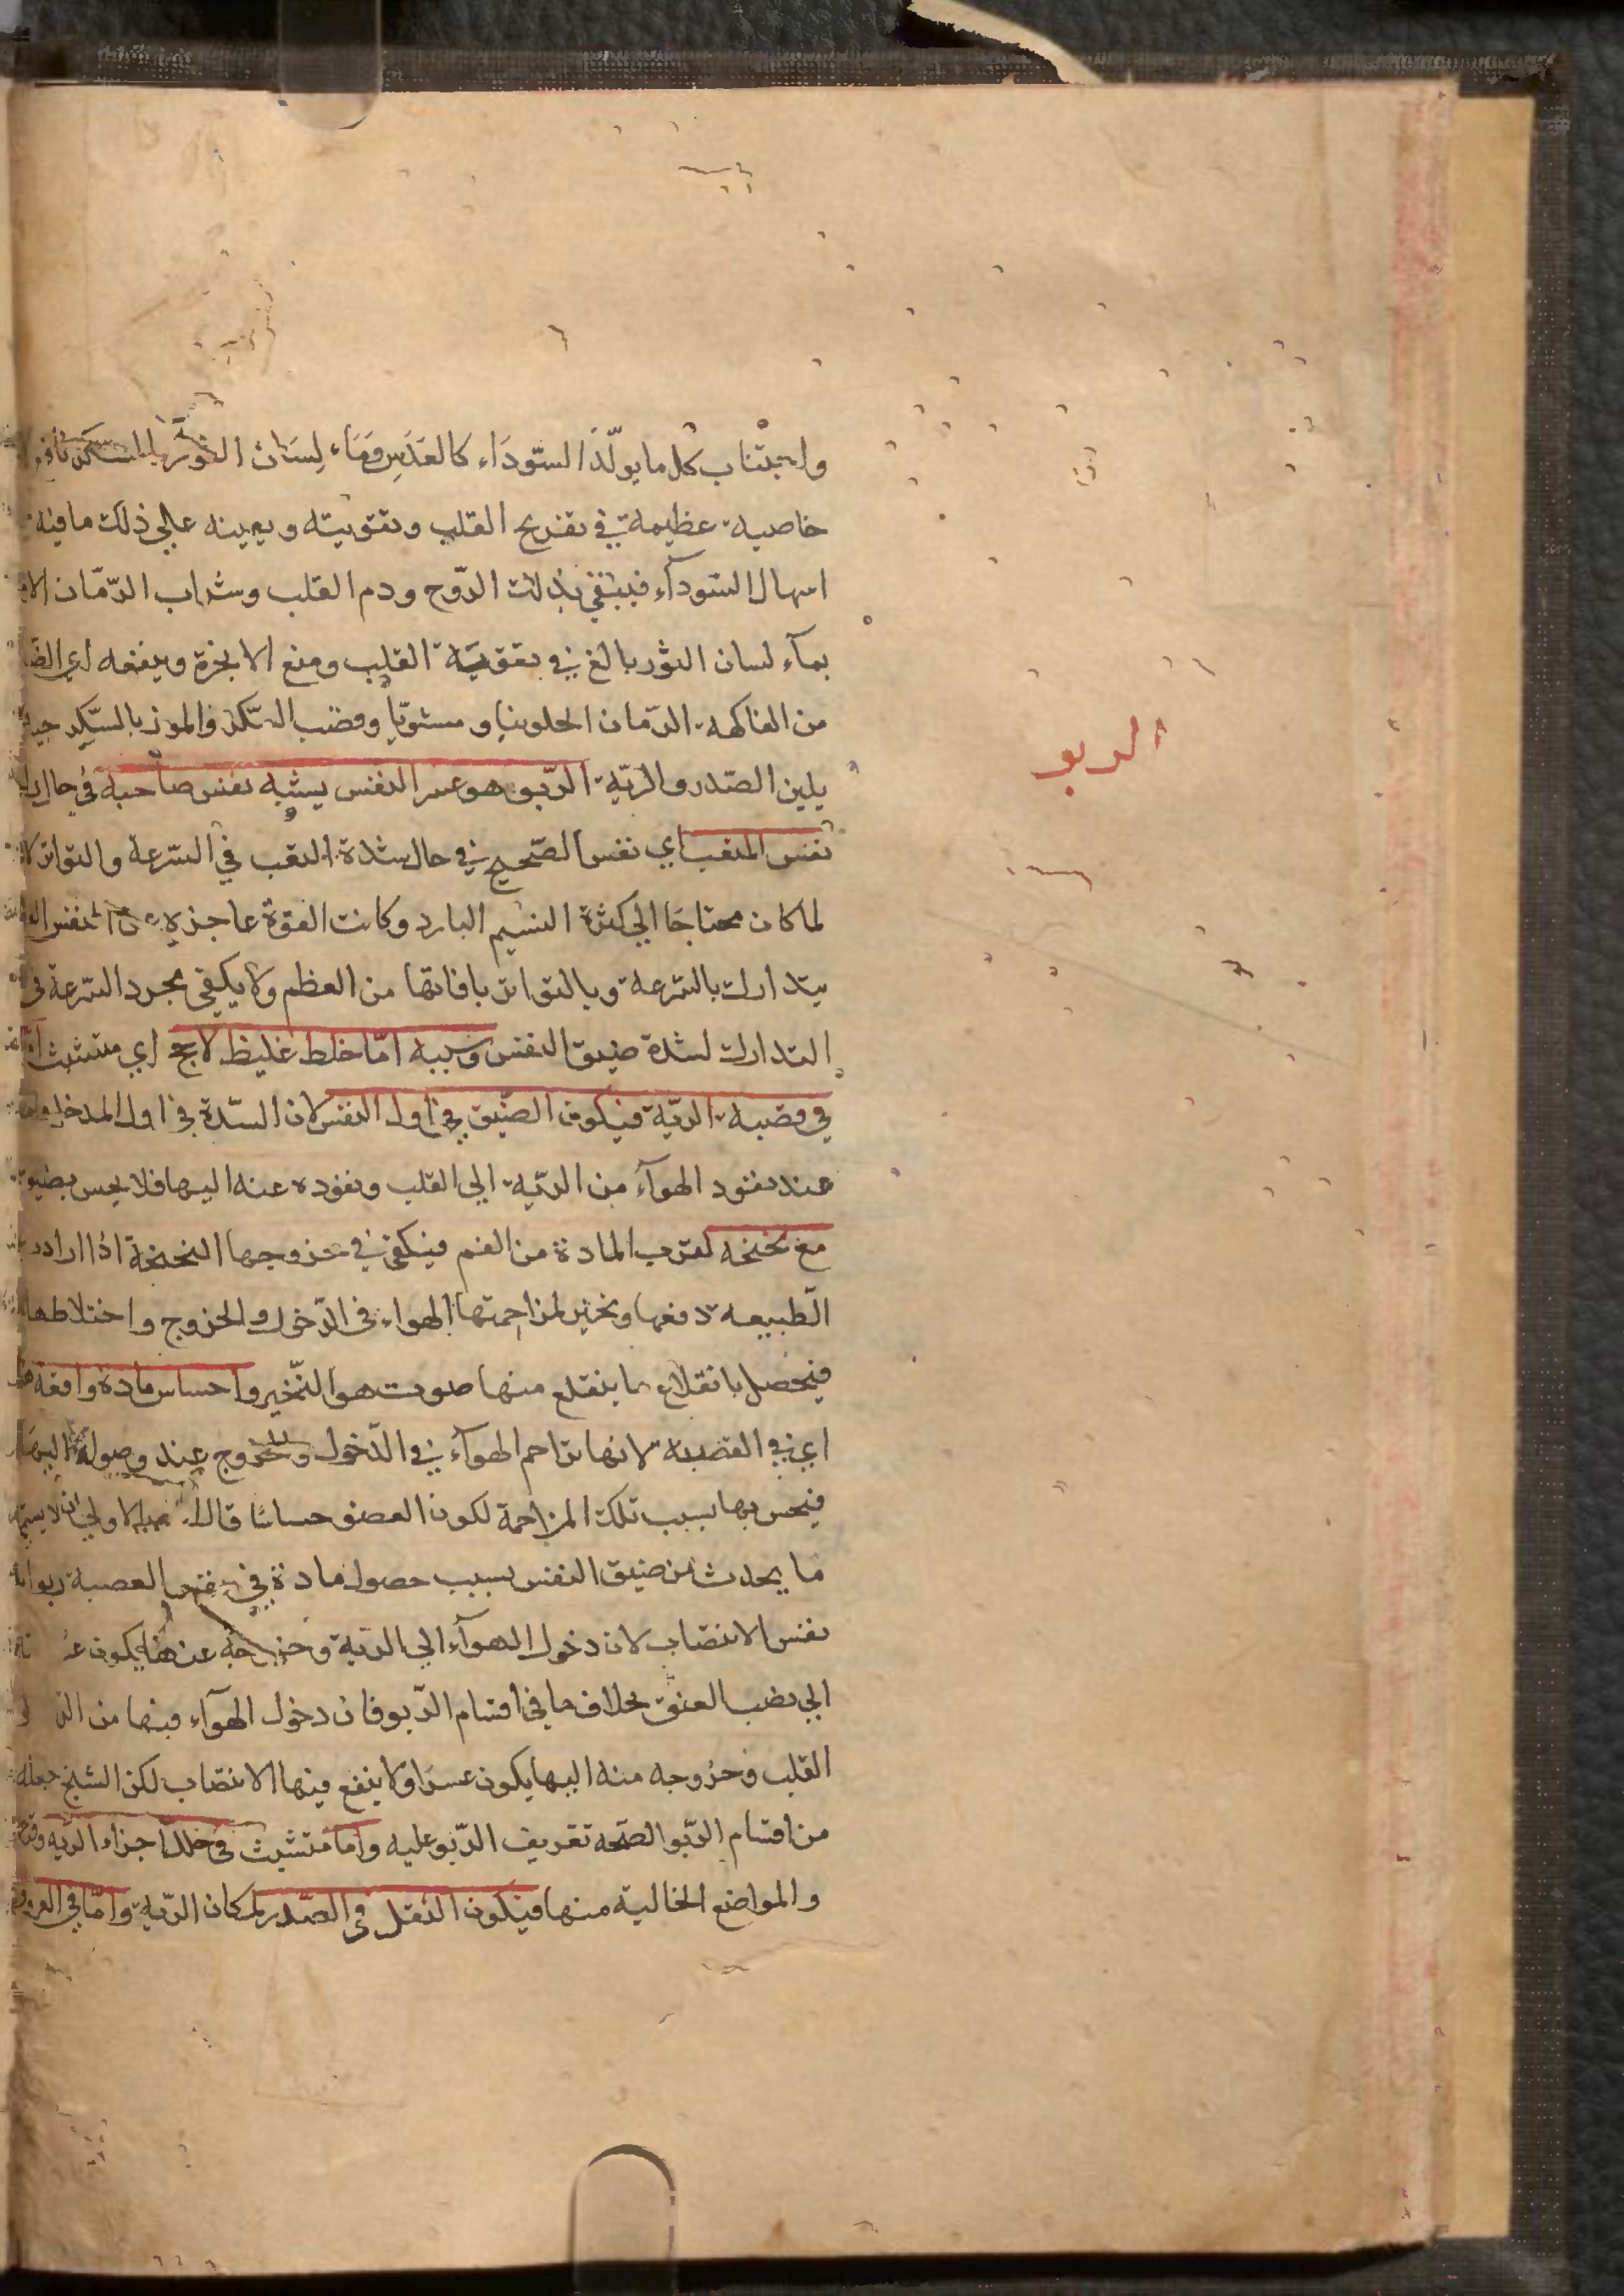 واجتناب كل ما يولّد السّودَاء كالعَدَسِ وَمَاء لِسَان الثور بالسكر نافع
خاصيه عظيمة في تفريح القلب وتقويته ويعينه علي ذلك ما فيه
اسهال السّودآء فينقي بذلك الرّوح ودم القلب وشراب الرّمّان
بمآء لسان الثور بالغ في تقوية القلب ومنع الابخرة وينفعه ايضا
من الفاكهة الرّمان الحلو نيا ومشوّيا وقضب السّكر والموز بالسّكر جيد
يلين الصّدر والريّة الرّبو هو عسر النفس يشبه نفس صاحبه في حال
نفس المتعب اي نفس الصّحيح في حال شدة التعب في السّرعة والتواتر
لما كان محتاجًا الي كثرة النسيم البارد وكانت القوة عاجزة عن النفس
يتدارك بالسّرعة وبالتواتر بافاتها من العظم ولا يكفي مجرد السّرعة في
التدارك لشدة ضيق النفس وسببه امّا خلط غليظ لاحج اي متشبث
في قصبة الريّة فيكون الضّيق في اول النفس لان السّدة في اول المدخل
عند نفود الهوآء من الريّة الي القلب ونفوده عنه اليها فلا يحس بضيق
مع نحنحه لقرب المادة من الفم فيكفي في خروجها النحنحة اذا ارادت
الطّبيعه دفعها ونخير لمزاحمتها الهواء في الدّخول والخروج واختلاطها
فيحصل بانقلاع ما ينقلع منها صوت هو النّخير واحساس مادة واقفه
اي في القصبة لانها تزاحم الهوآء في الدّخول وخروج عند وصوله اليها
فيحس بها بسبب تلك المزاحمة لكون العضو حساسًا قال الاولي ان لا يسمي
ما يحدث من ضيق النفس بسبب حصول مادة في نفس القصبة ربوا
نفس الانتصاب لان دخول الهوآء الي الريّة وخروجه عنها يكون
الي نصب العنق بخلاف ما في اقسام الرّبو فان دخول الهوآء فيها من
القلب وخروجه منه اليها يكون عسرًا ولا ينفع فيها الانتصاب لكن الشيخ جعله
من اقسام الرّبو لصّحة تعريف الرّبو عليه واما متشبث في خلل اجزاء الريّه
والمواضع الخالية منها فيكون الثقل في الصّدر لمكان الريّة وامّا في
الربو